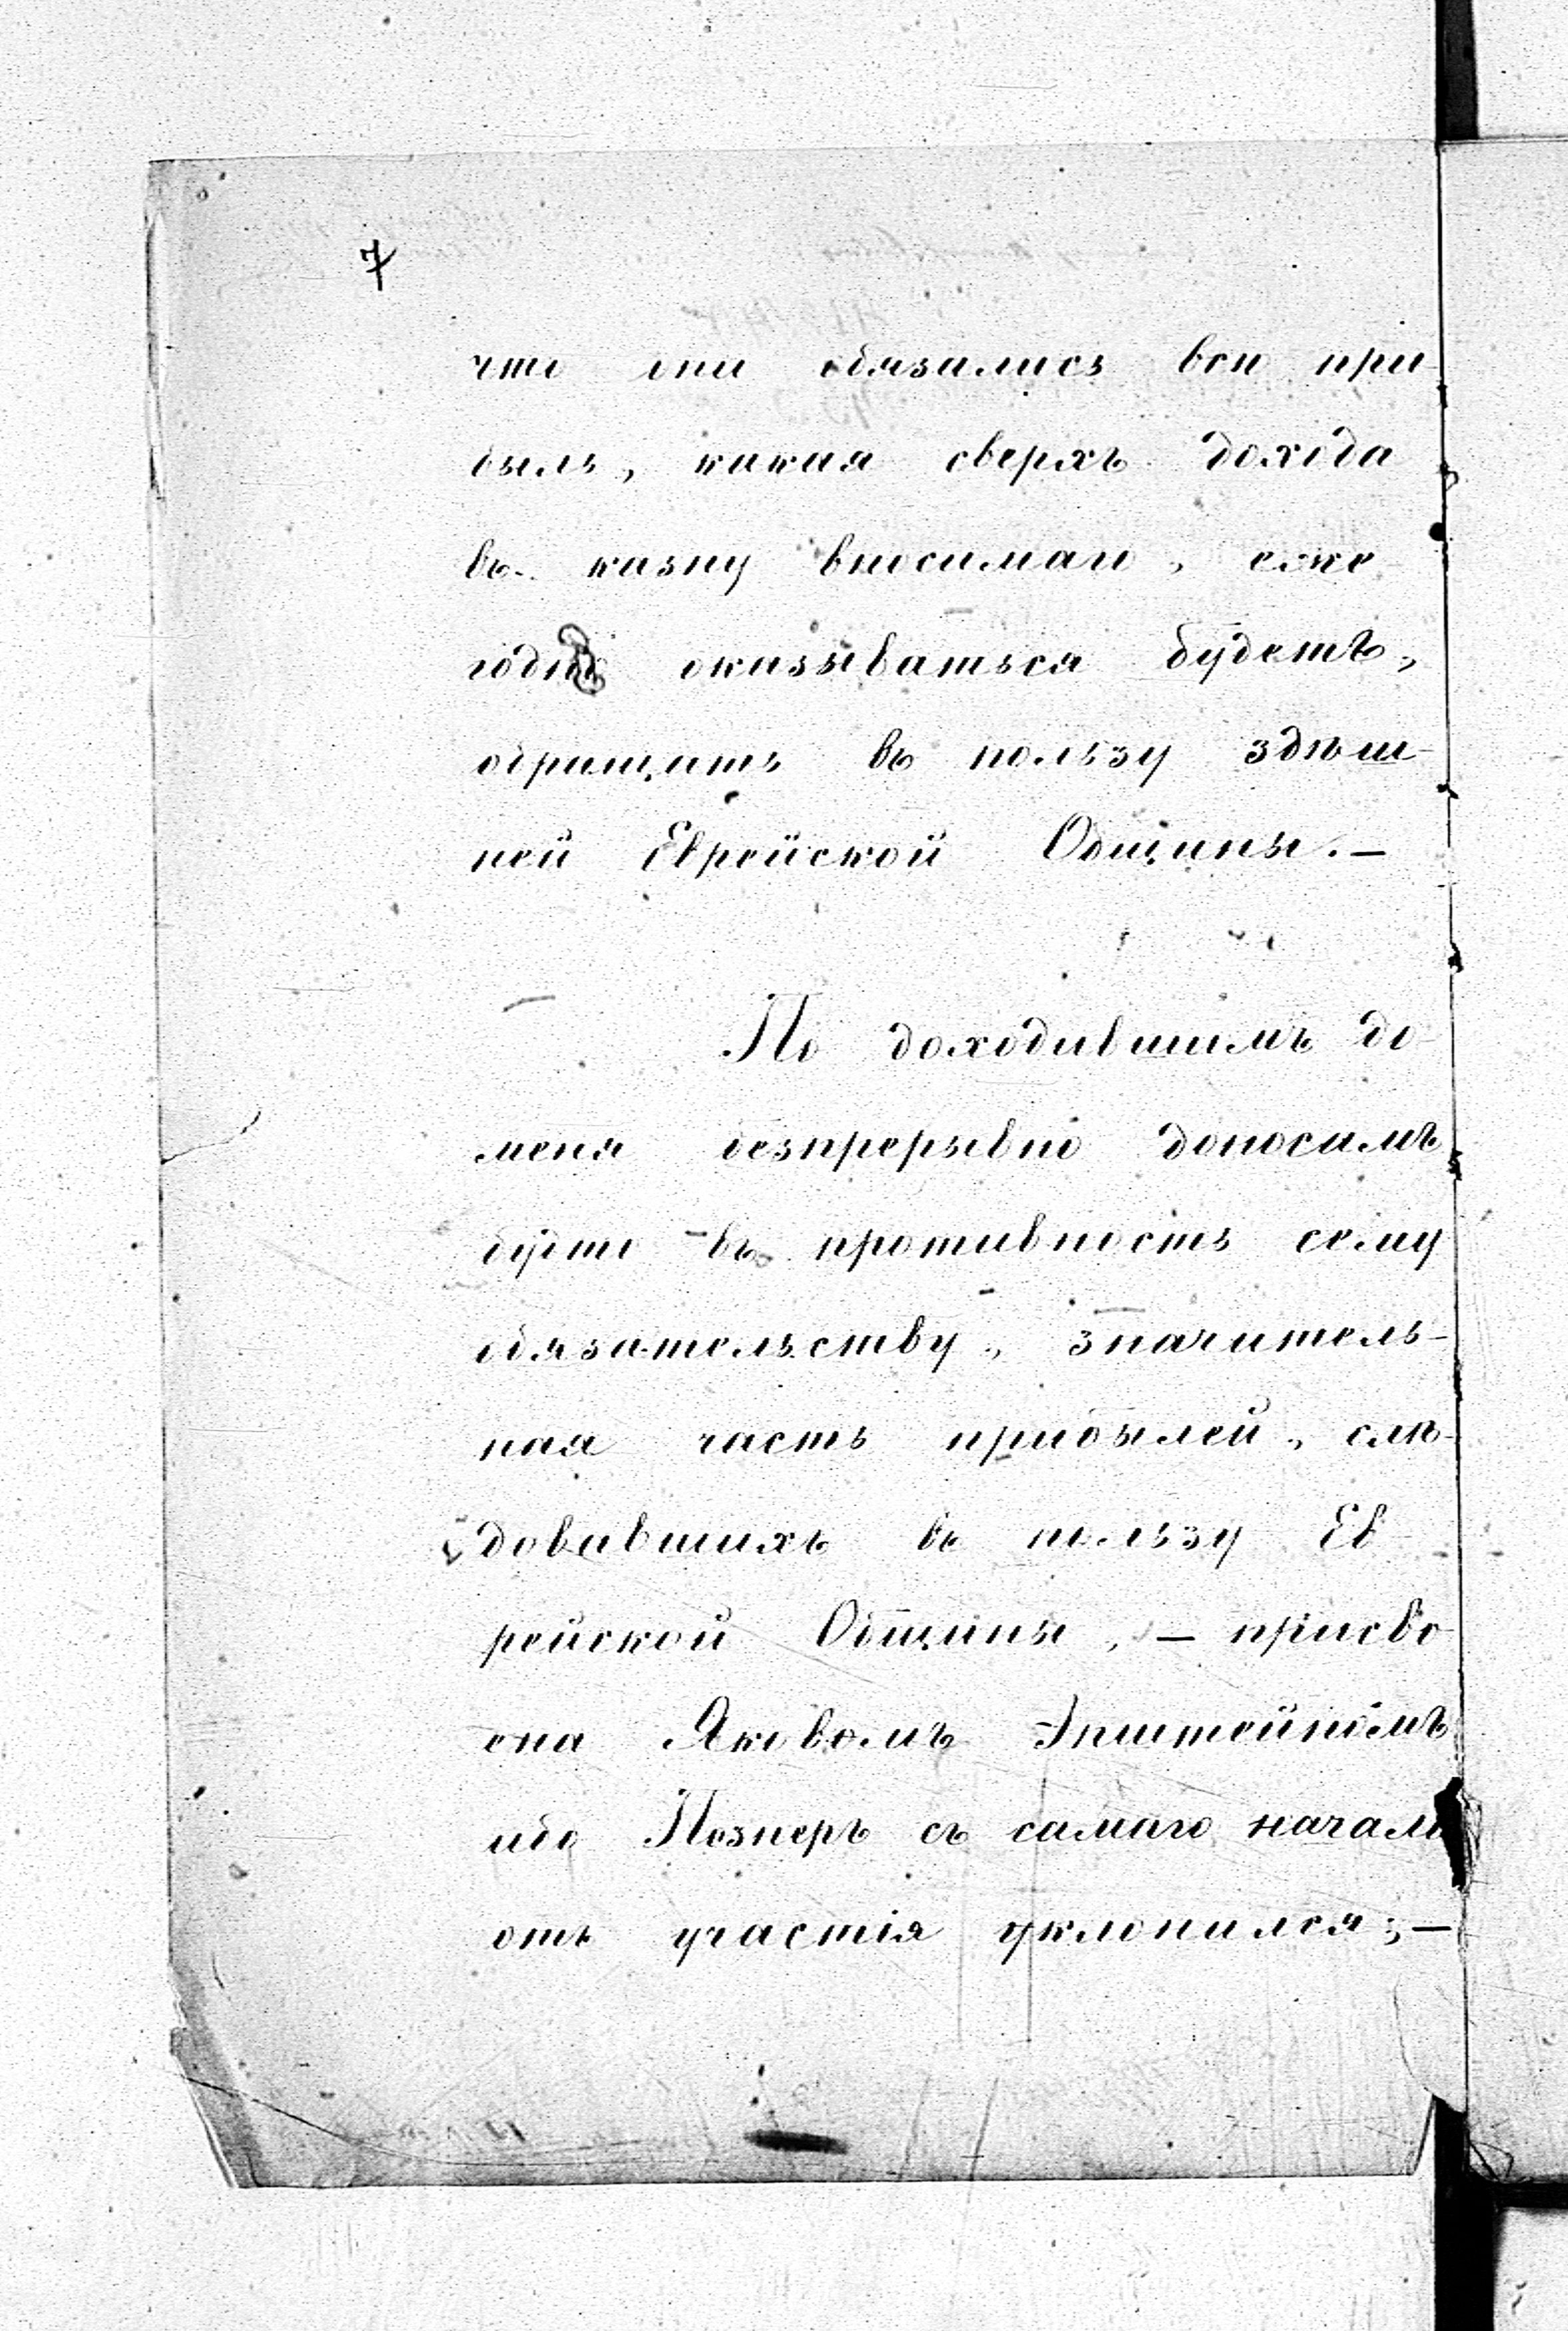 7
что они обязались всѣ при
быль, какая сверхъ дохода
въ казну вносимаго, еже
годно оказываться будетъ,
обращать въ пользу здѣш-
ней Еврейской Общины.—
По доходившимъ до
меня безпрерывно доносамъ
будто въ противность сему
обязательству, значитель-
ная часть прибылей, слѣ-
довавшихъ въ пользу Ев
рейской Общины, — присво
ена Яковомъ Эпштейномъ
ибо Познеръ съ самаго начала
отъ участія уклонился;—